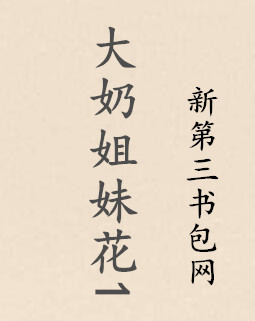 大奶姐妹花1
新第三书包网